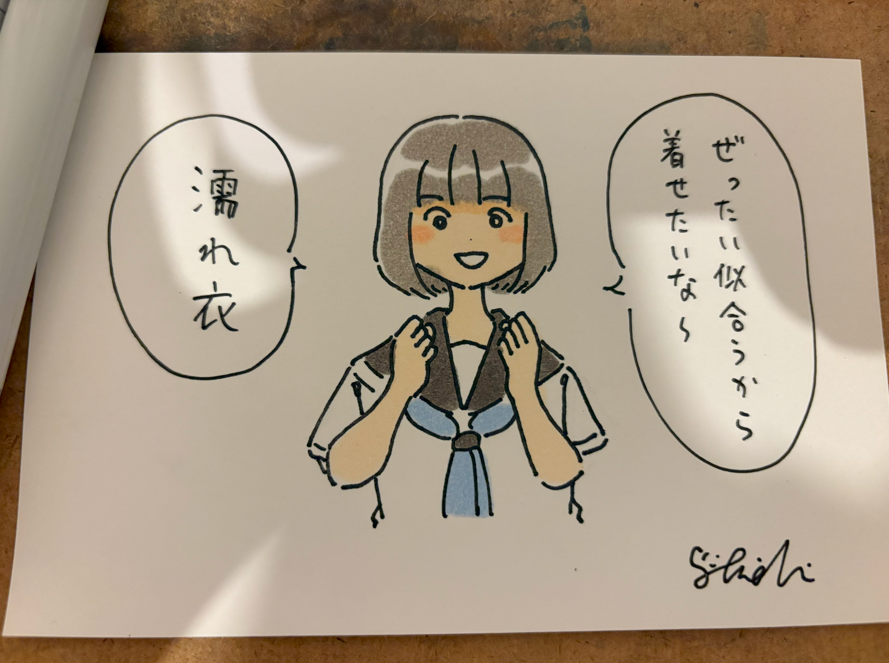 ぜったい似合うから
着せたいな〜
濡れ衣